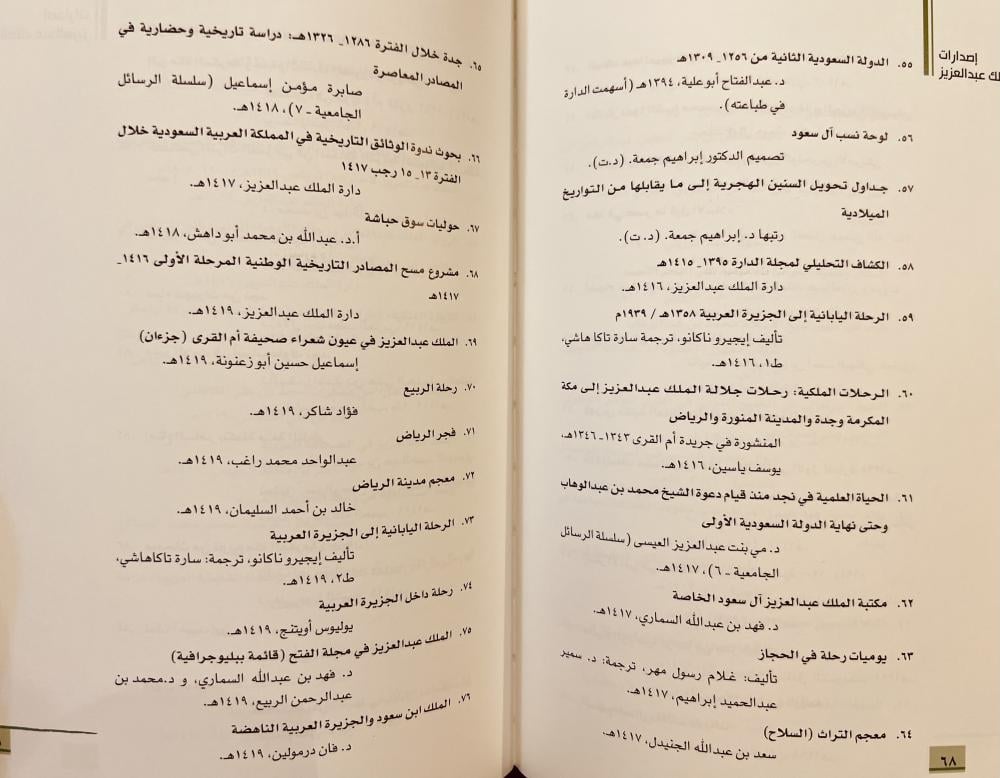 إصدارات
لك عبدالعزيز
٥٥. الدولة السعودية الثانية من ١٢٥٦ـ ١٣٠٩هـ
د. عبدالفتاح أبو علية، ١٣٩٤هـ (أسهمت الدارة
في طباعته).
٥٦. لوحة نسب آل سعود
تصميم الدكتور إبراهيم جمعة. (د.ت).
٥٧. جداول تحويل السنين الهجرية إلى ما يقابلها من التواريخ
الميلادية
رتبها د. إبراهيم جمعة. (د. ت).
٥٨. الكشاف التحليلي لمجلة الدارة ١٣٩٥ـ ١٤١٥هـ
دارة الملك عبدالعزيز، ١٤١٦هـ.
٥٩. الرحلة اليابانية إلى الجزيرة العربية ١٣٥٨هـ / ١٩٣٩م
تأليف إيجيرو ناكانو، ترجمة سارة تاكا هاشي،
ط١، ١٤١٦هـ.
٦٠. الرحلات الملكية: رحلات جلالة الملك عبدالعزيز إلى مكة
المكرمة وجدة والمدينة المنورة والرياض
المنشورة في جريدة أم القرى ١٣٤٣ـ ١٣٤٦هـ،
يوسف ياسين، ١٤١٦هـ.
٦١. الحياة العلمية في نجد منذ قيام دعوة الشيخ محمد بن عبدالوهاب
وحتى نهاية الدولة السعودية الأولى
د. مي بنت عبدالعزيز العيسى (سلسلة الرسائل
الجامعية ـ ٦)، ١٤١٧هـ.
٦٢. مكتبة الملك عبدالعزيز آل سعود الخاصة
د. فهد بن عبدالله السماري، ١٤١٧هـ.
٦٣. يوميات رحلة في الحجاز
تأليف: غلام رسول مهر، ترجمة: د. سمير
عبدالحميد إبراهيم، ١٤١٧هـ.
٦٤. معجم التراث (السلاح)
سعد بن عبدالله الجنيدل، ١٤١٧هـ.
٦٨
٦٥. جدة خلال الفترة ١٢٨٦ـ ١٣٢٦هـ: دراسة تاريخية وحضارية في
المصادر المعاصرة
صابرة مؤمن إسماعيل (سلسلة الرسائل
الجامعية ـ ٧)، ١٤١٨هـ.
٦٦. بحوث ندوة الوثائق التاريخية في المملكة العربية السعودية خلال
الفترة ١٣ـ ١٥ رجب ١٤١٧
دارة الملك عبدالعزيز، ١٤١٧هـ.
٦٧. حوليات سوق حباشة
أ.د. عبدالله بن محمد أبو داهش، ١٤١٨هـ.
٦٨. مشروع مسح المصادر التاريخية الوطنية المرحلة الأولى ١٤١٦ـ
١٤١٧هـ
دارة الملك عبدالعزيز، ١٤١٩هـ.
٦٩. الملك عبدالعزيز في عيون شعراء صحيفة أم القرى (جزءان)
إسماعيل حسين أبو زعنونة، ١٤١٩هـ.
٧٠. رحلة الربيع
فؤاد شاكر، ١٤١٩هـ.
٧١. فجر الرياض
عبدالواحد محمد راغب، ١٤١٩هـ.
٧٢. معجم مدينة الرياض
خالد بن أحمد السليمان، ١٤١٩هـ.
٧٣. الرحلة اليابانية إلى الجزيرة العربية
تأليف إيجيرو ناكانو، ترجمة: سارة تاكاهاشي،
ط٢، ١٤١٩هـ.
٧٤. رحلة داخل الجزيرة العربية
يوليوس أويتنج، ١٤١٩هـ.
٧٥. الملك عبدالعزيز في مجلة الفتح (قائمة ببليوجرافية)
د. فهد بن عبدالله السماري، و د.محمد بن
عبدالرحمن الربيع، ١٤١٩هـ.
٧٦. الملك ابن سعود والجزيرة العربية الناهضة
د. فان درمولين، ١٤١٩هـ.